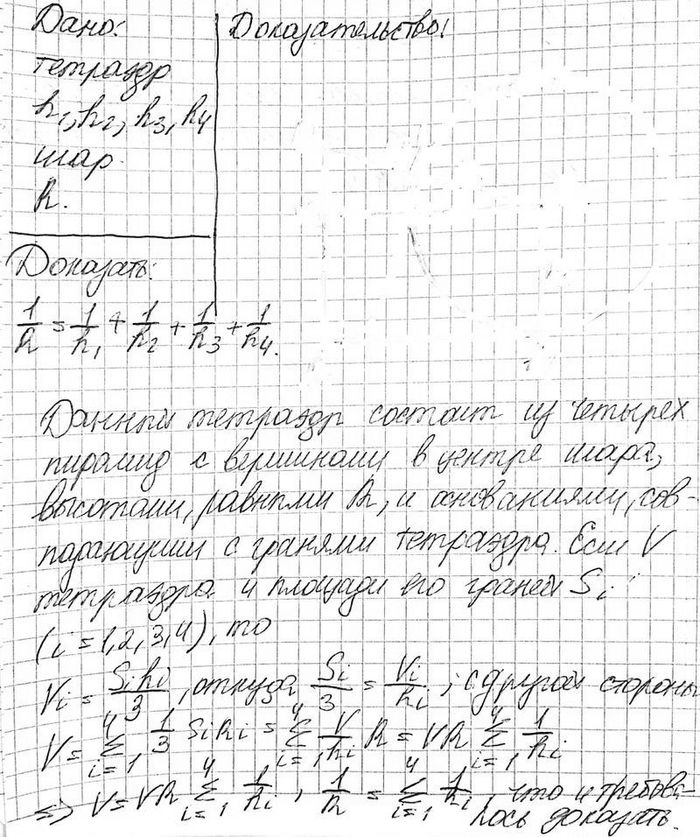 Дано:
тетраэдр
h₁, h₂, h₃, h₄
шар
R.
Доказательство:
Доказать:
1/R = 1/h₁ + 1/h₂ + 1/h₃ + 1/h₄.
Данный тетраэдр состоит из четырех
пирамид с вершинами в центре шара,
высотами, равными R, и основаниями, сов-
падающими с гранями тетраэдра. Если V
тетраэдра и площади его граней Sᵢ
(i = 1, 2, 3, 4), то
Vᵢ = Sᵢhᵢ/3, откуда Sᵢ/3 = Vᵢ/hᵢ; с другой стороны
V = ∑⁴ᵢ₌₁ 1/3 SᵢRᵢ = ∑⁴ᵢ₌₁ V/hᵢ R = VR ∑⁴ᵢ₌₁ 1/hᵢ
=> V = VR ∑⁴ᵢ₌₁ 1/hᵢ, 1/R = ∑⁴ᵢ₌₁ 1/hᵢ, что и требова-
лось доказать.